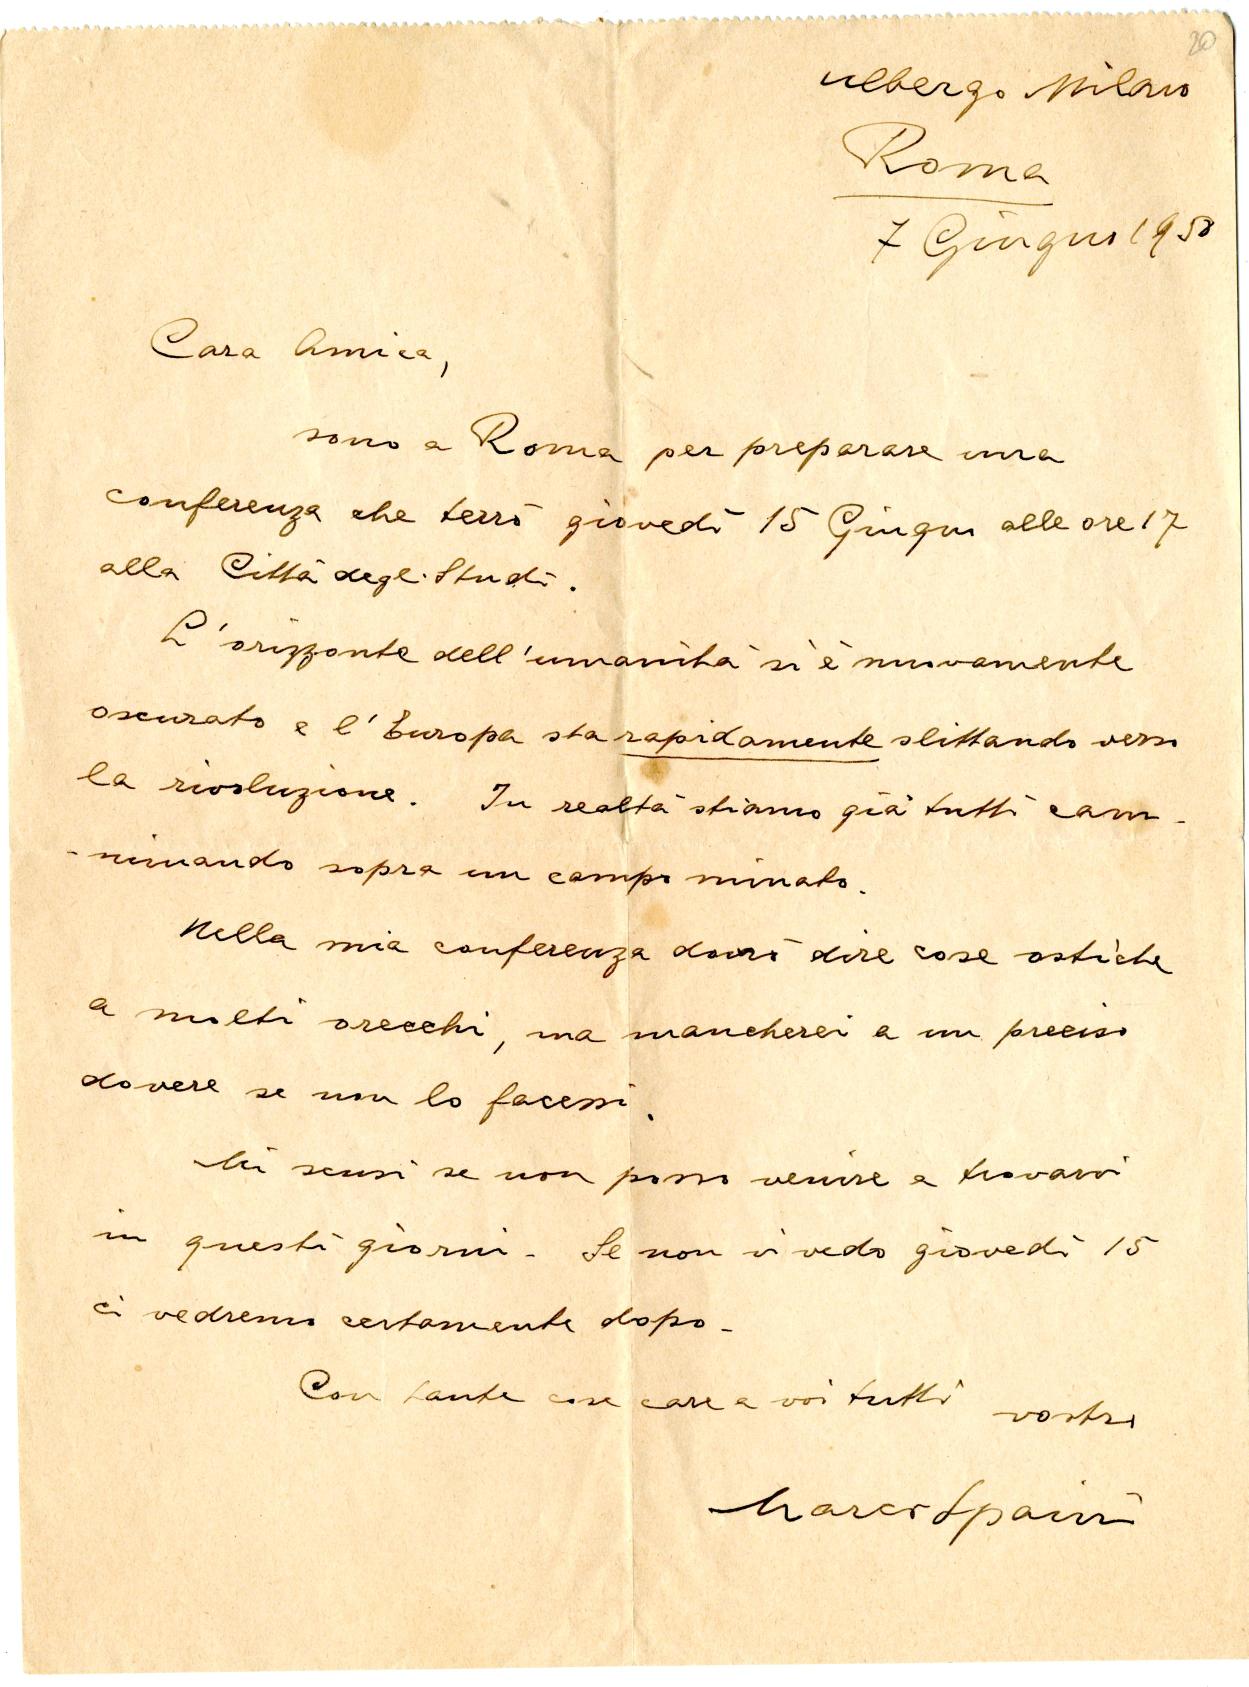 20
Albergo Milano
Roma
7 Giugno 1950
Cara Amica,
sono a Roma per preparare una
conferenza che terrò giovedì 15 Giugno alle ore 17
alla Città degli Studi.
L'orizzonte dell'umanità si è nuovamente
oscurato e l'Europa sta rapidamente slittando verso
la rivoluzione. In realtà stiamo già tutti cam-
-minando sopra un campo minato.
Nella mia conferenza dovrò dire cose ostiche
a molti orecchi, ma mancherei a un preciso
dovere se non lo facessi.
Mi scusi se non posso venire a trovarvi
in questi giorni. Se non vi vedo giovedì 15
ci vedremo certamente dopo.
Con tante cose care a voi tutti vostro
Marco Spaini